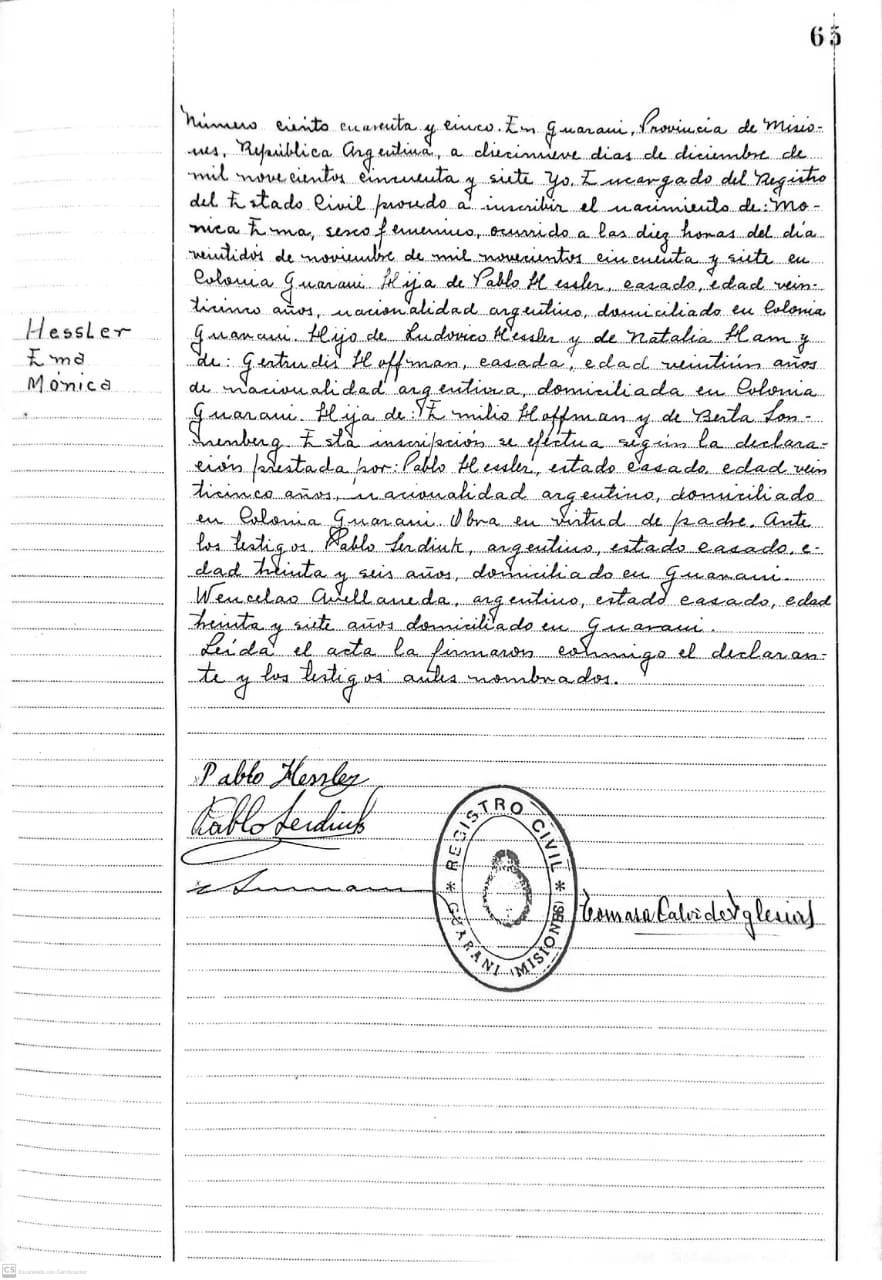 65
Número ciento cuarenta y cinco. En Guarani, Provincia de Misio-
nes, República Argentina, a diecinueve dias de diciembre de
mil novecientos cincuenta y siete Yo, Encargado del Registro
del Estado Civil procedo a inscribir el nacimiento de: Mo-
nica Ema, sexo femenino, ocurrido a las diez horas del día
veintidos de noviembre de mil novecientos cincuenta y siete en
Colonia Guarani. Hija de Pablo Hessler, casado, edad vein-
ticinco años, nacionalidad argentino, domiciliado en Colonia
Guarani. Hijo de Ludovico Hessler y de Natalia Ham y
de: Gertrudis Hoffman, casada, edad veintiún años
de nacionalidad argentina, domiciliada en Colonia
Guarani. Hija de: Emilio Hoffman y de Berta Son-
nenberg. Esta inscripción se efectua según la declara-
ción prestada por: Pablo Hessler, estado casado, edad vein
ticinco años, nacionalidad argentino, domiciliado
en Colonia Guarani. Obra en virtud de padre. Ante
los testigos. Pablo Serdiuk, argentino, estado casado, e-
dad treinta y seis años, domiciliado en Guarani.
Wencelao Avellaneda, argentino, estado casado, edad
treinta y siete años domiciliado en Guarani.
Leída el acta la firmaron conmigo el declaran-
te y los testigos antes nombrados.
Hessler
Ema
Mónica
Pablo Hessler
Pablo Serdiuk
REGISTRO CIVIL
GUARANI (MISIONES)
Tomasa Calvo de Yglesias
CS Escaneado con CamScanner